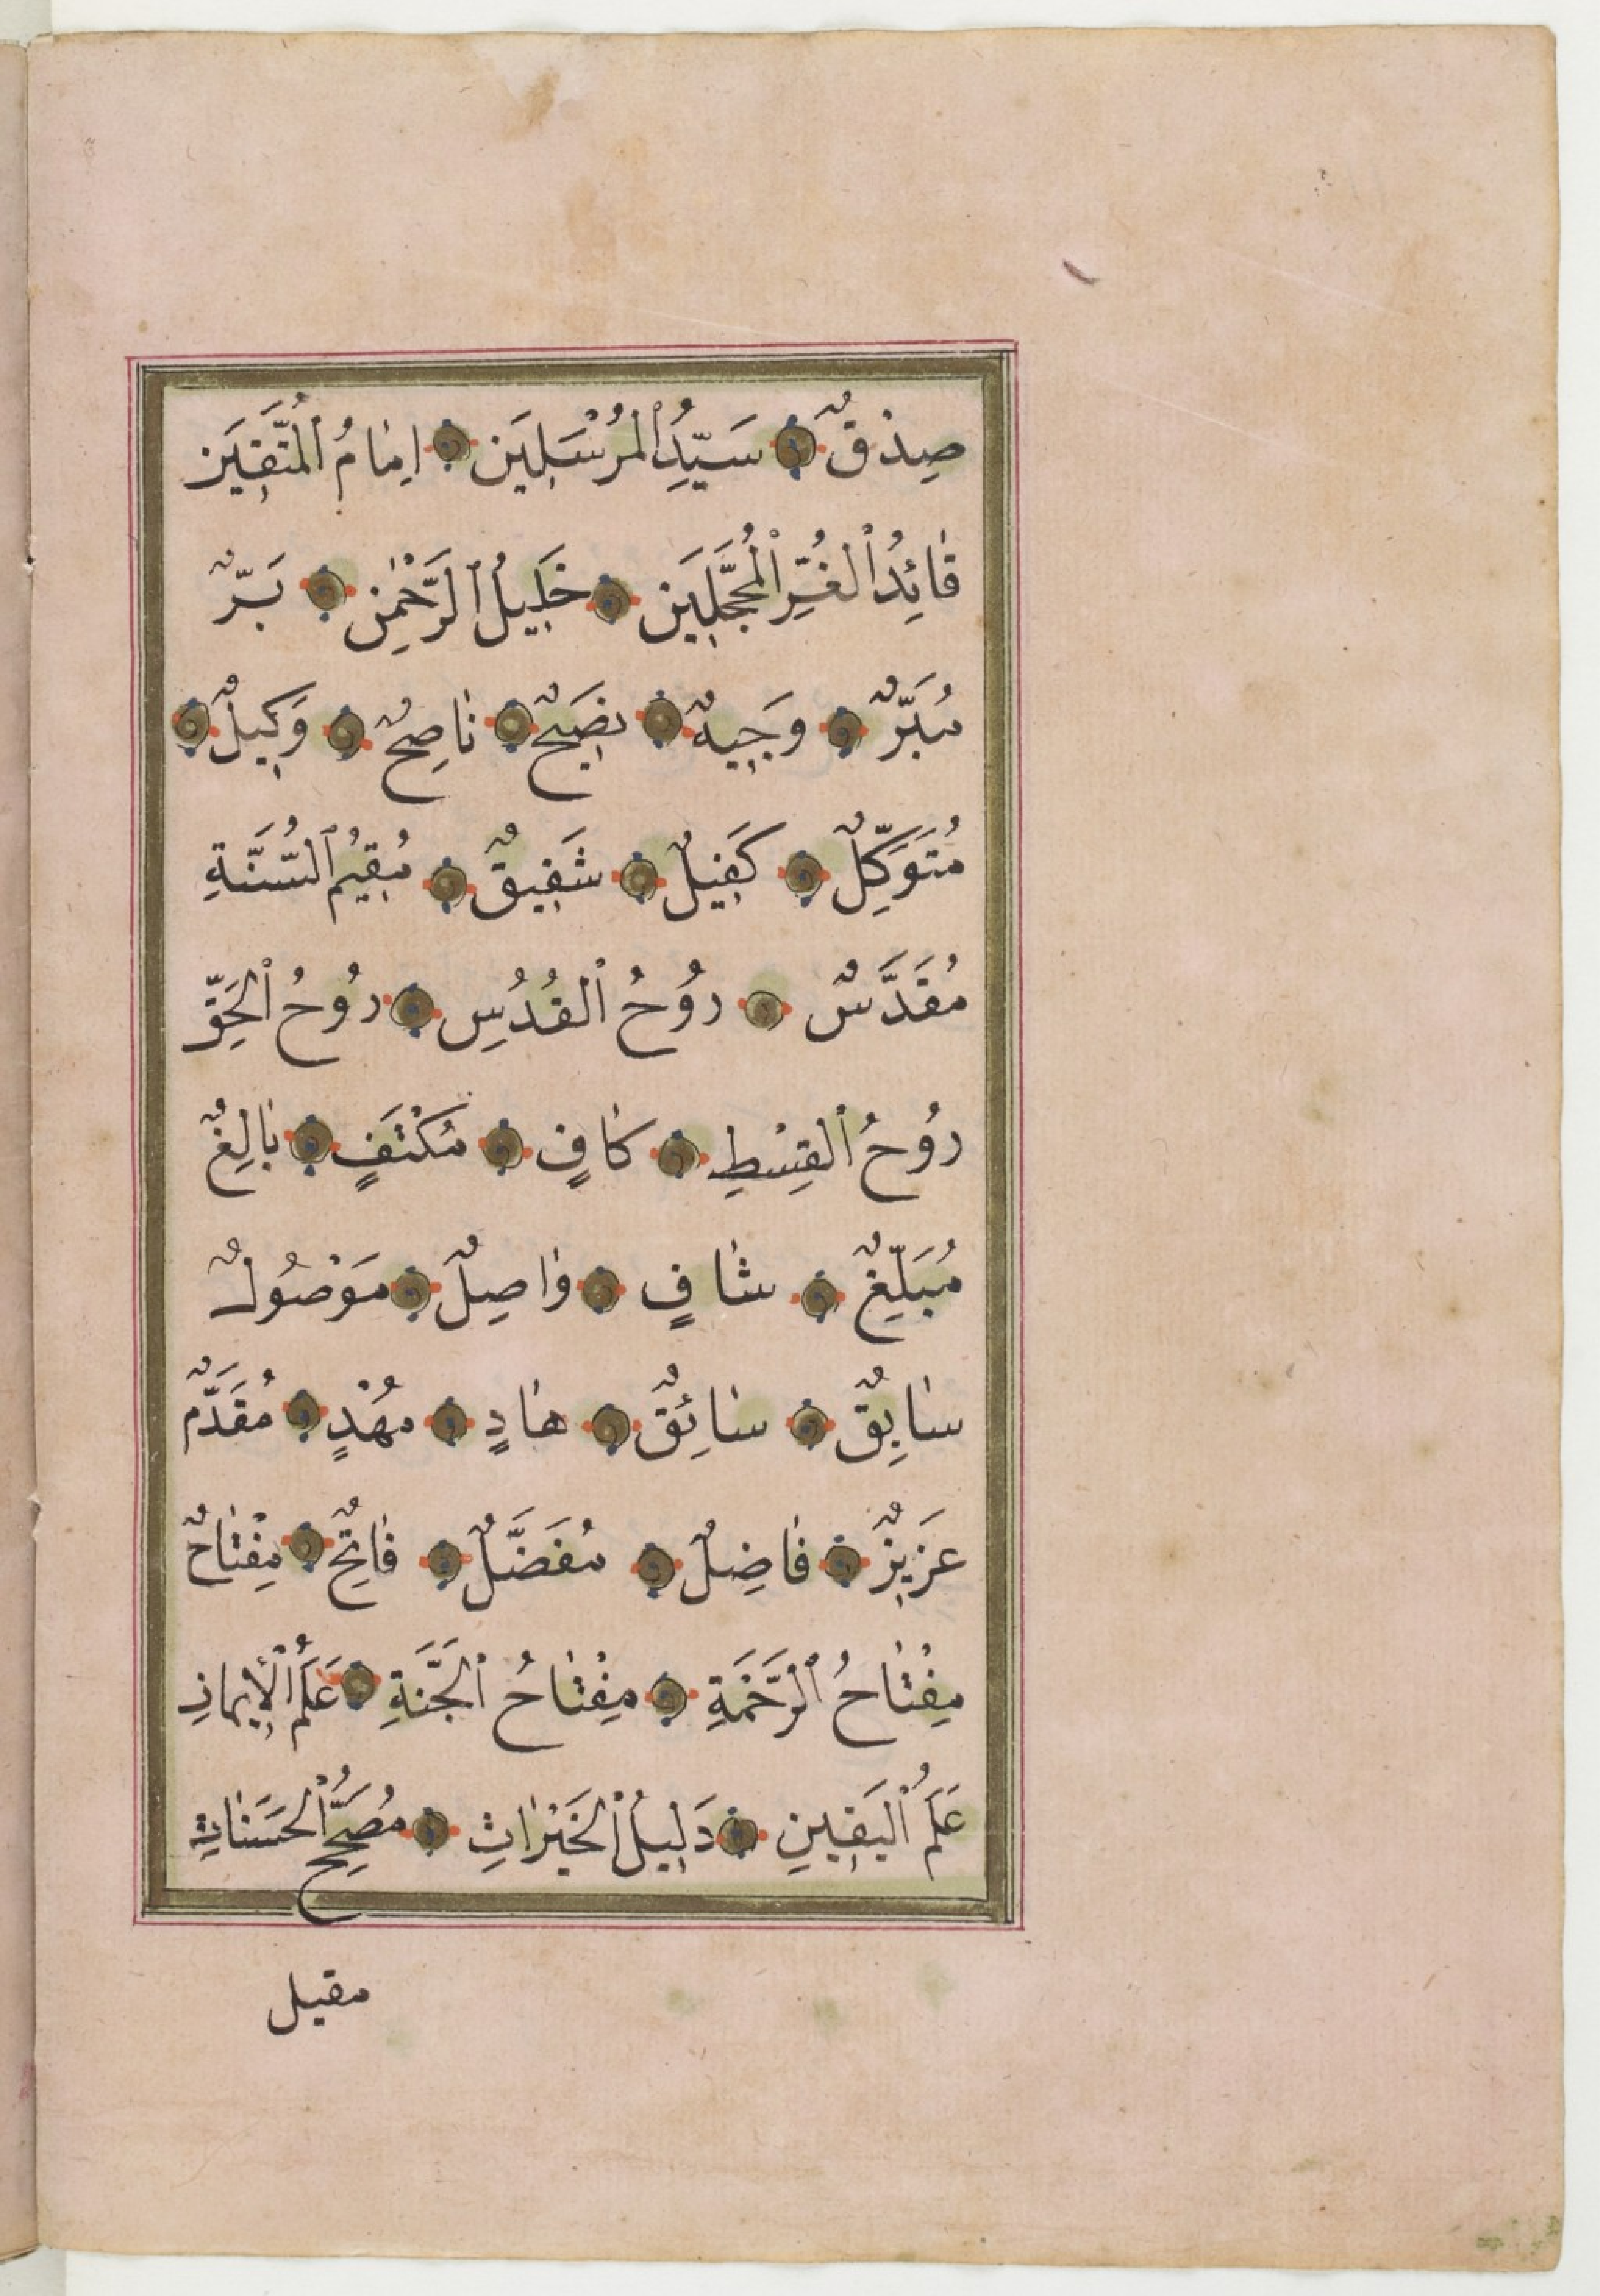 صِدْقٌ سَيِّدُ ٱلْمُرْسَلِينَ اِمَامُ ٱلْمُتَّقِينَ
قَائِدُ ٱلْغُرِّ ٱلْمُحَجَّلِينَ خَلِيلُ ٱلرَّحْمٰنِ بَرٌّ
مُبَرٌّ وَجِيهٌ نَصِيحٌ نَاصِحٌ وَكِيلٌ
مُتَوَكِّلٌ كَفِيلٌ شَفِيقٌ مُقِيمُ ٱلسُّنَّةِ
مُقَدَّسٌ رُوحُ ٱلْقُدُسِ رُوحُ ٱلْحَقِّ
رُوحُ ٱلْقِسْطِ كَافٍ مُكْتَفٍ بَالِغٌ
مُبَلِّغٌ شَافٍ وَاصِلٌ مَوْصُولٌ
سَابِقٌ سَائِقٌ هَادٍ مُهْدٍ مُقَدَّمٌ
عَزِيزٌ فَاضِلٌ مُفَضَّلٌ فَاتِحٌ مِفْتَاحٌ
مِفْتَاحُ ٱلرَّحْمَةِ مِفْتَاحُ ٱلْجَنَّةِ عَلَمُ ٱلْإِيمَانِ
عَلَمُ ٱلْيَقِينِ دَلِيلُ ٱلْخَيْرَاتِ مُصَحِّحُ ٱلْحَسَنَاتِ
مقيل